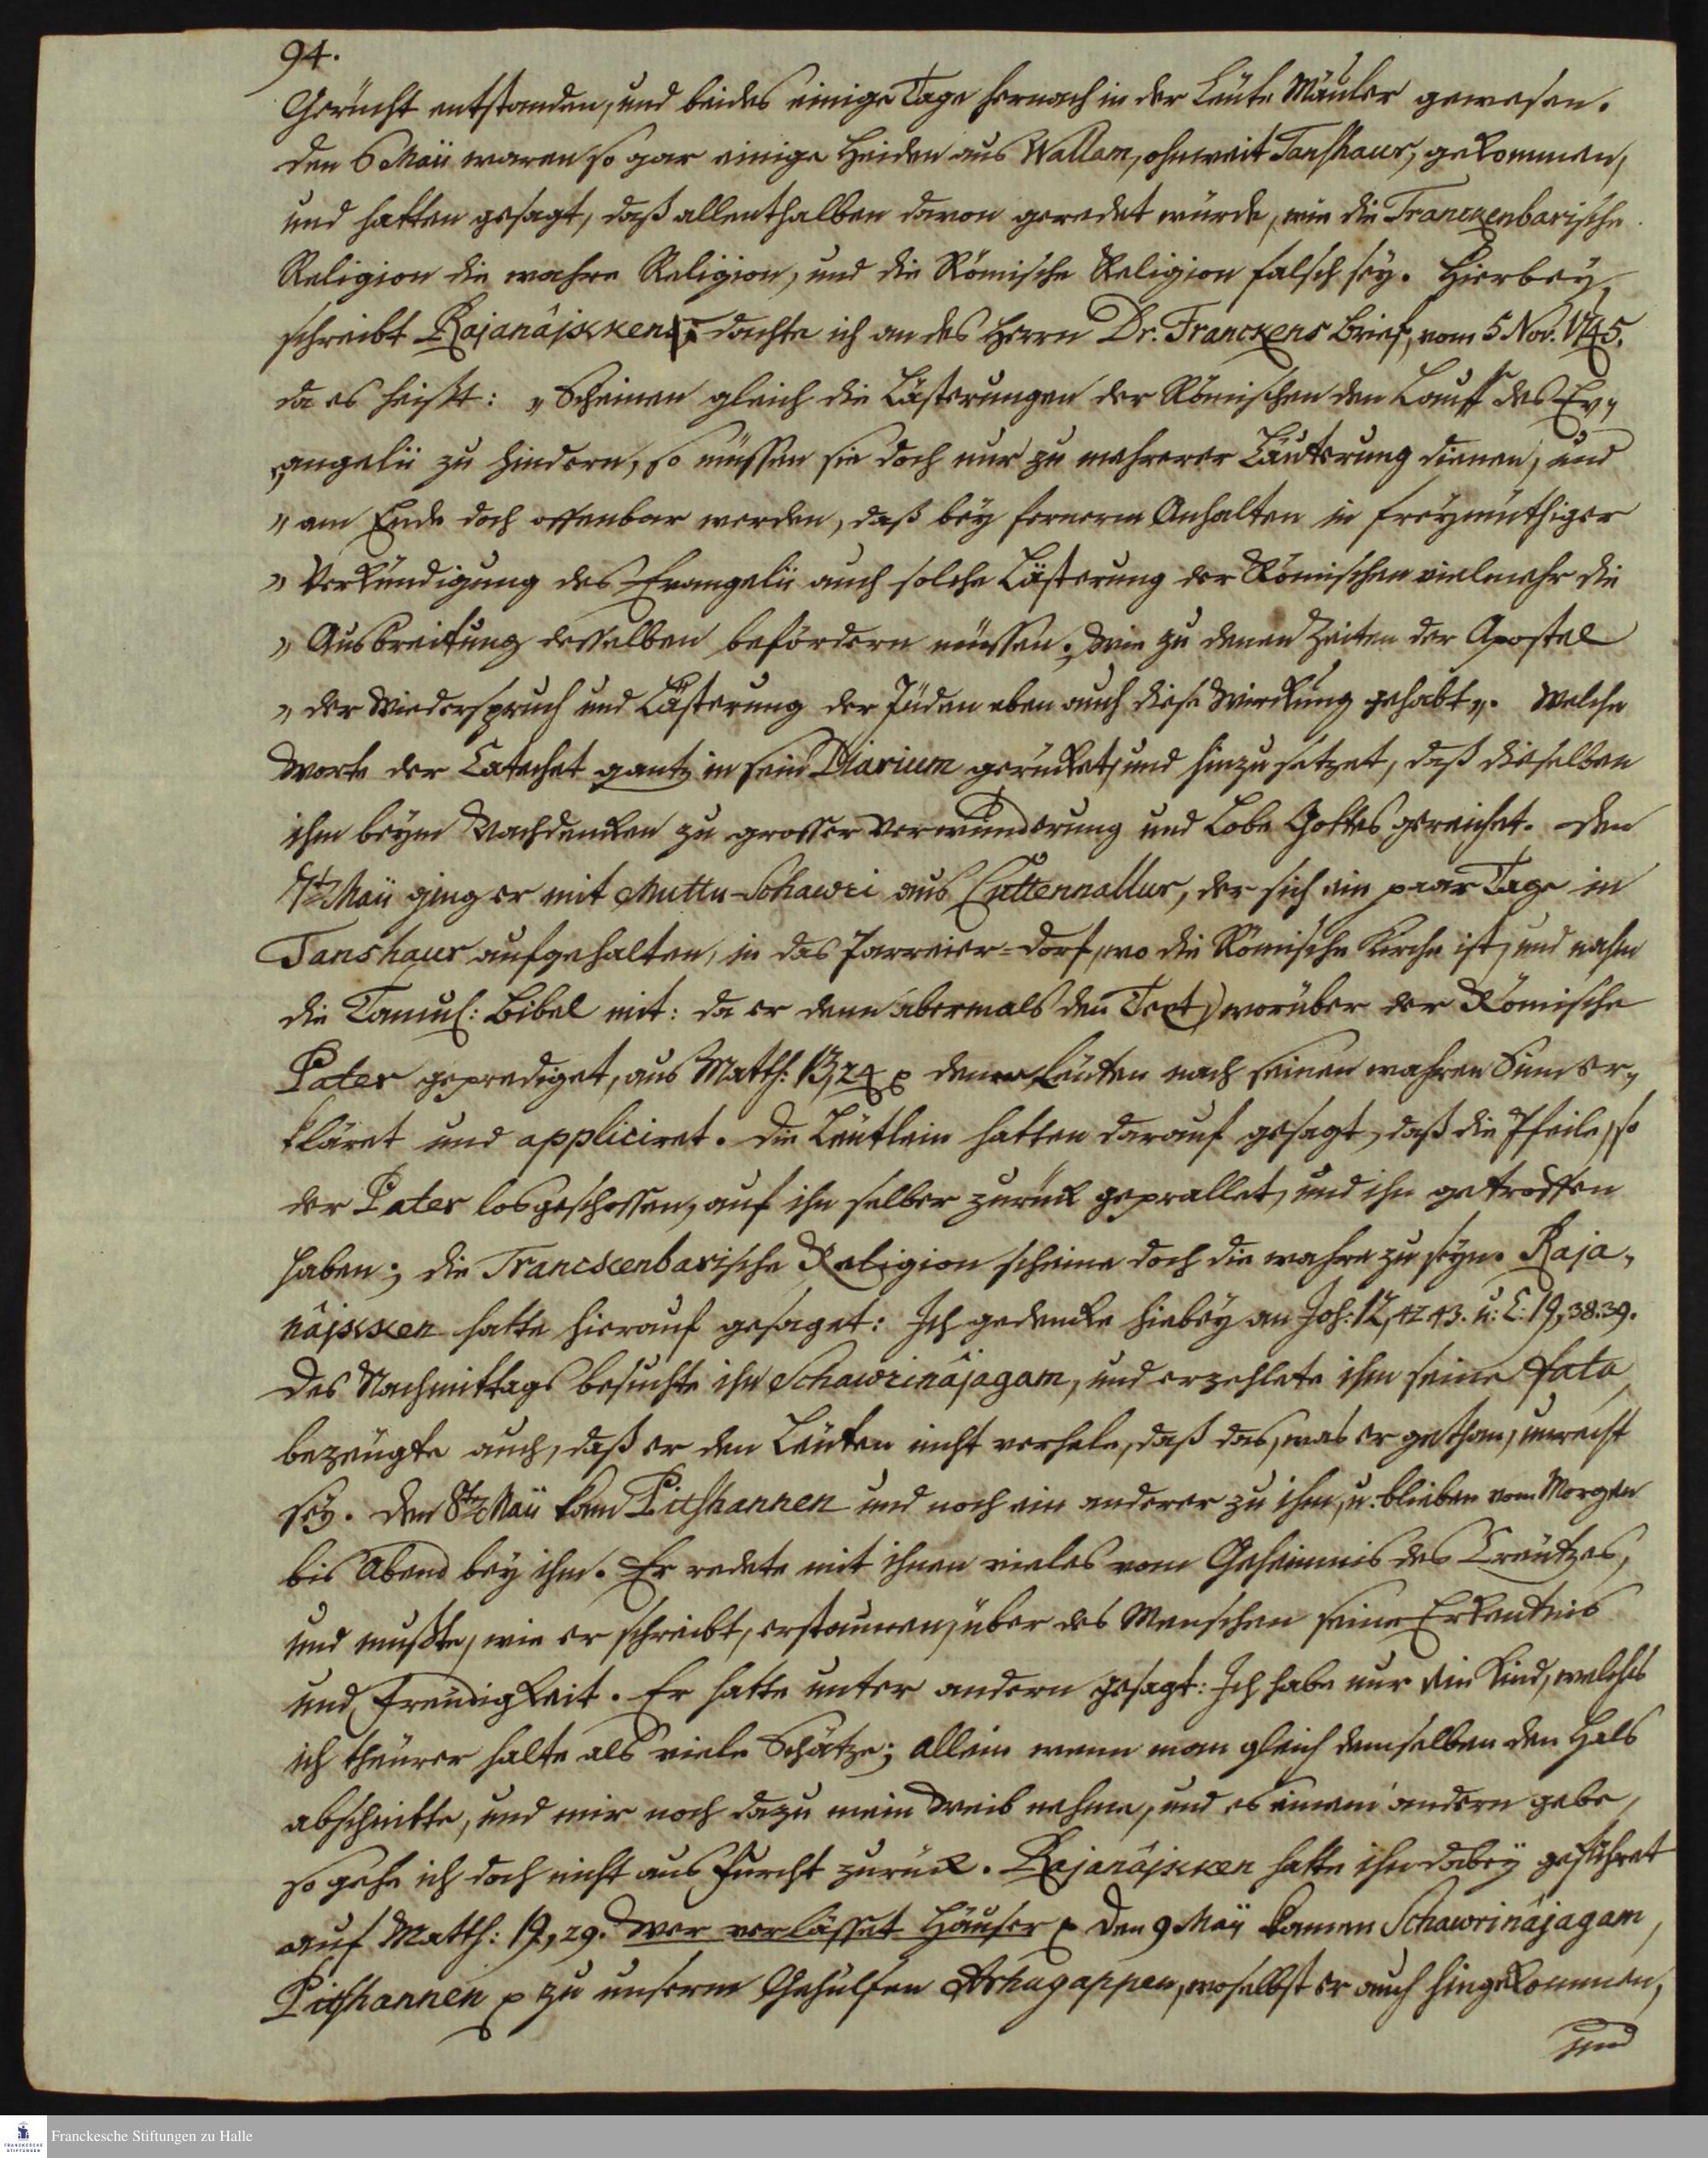 94.
Gerücht entstanden, und beides einige Tage hernach in der Leute Mäuler gewesen.
Den 6 Maii waren so gar einige Heiden aus Wallam, ohnweit Tanshaur, gekommen,
und hatten gesagt, daß allenthalben davon geredet würde, wie die Tranckenbarische
Religion die wahre Religion, und die Römische Religion falsch sey. Hierbey,
schreibt Rajanâjkken, dachte ich an des Herrn Dr. Franckens Brief, vom 5 Nov. 1745.
da es heißt: „Scheinen gleich die Lästerungen der Römischen den Lauff des Ev„
„angelii zu hindern, so müssen sie doch nur zu mehrerer Läuterung dienen, und
„am Ende doch offenbar werden, daß bey fernerm Anhalten in freymüthiger
„Verkündigung des Evangelii auch solche Lästerung der Römischen vielmehr die
„Ausbreitung desselben befördern müssen. Wie zu denen Zeiten der Apostel
„der Wiederspruch und Lästerung der Juden eben auch diese Wirkung gehabt„. Welche
Worte der Catechet gantz in sein Diarium gerücket, und hinzu setzet, daß dieselben
ihm beym Nachdencken zu grosser Verwunderung und Lobe Gottes gereichet. Den
7t. Maii ging er mit Muttu-Schawri aus Cuttennallur, der sich ein paar Tage in
Tanshaur aufgehalten, in das Parreier-Dorf, wo die Römische Kirche ist, und nahm
die Tamul: Bibel mit: da er denn abermals den Text, worüber der Römische
Pater geprediget, aus Matth: 13,24 p denen Leuten nach seinen wahren Sinn er„
kläret und appliciret. Die Leutlein hatten darauf gesagt, daß die Pfeile, so
der Pater losgeschossen, auf ihn selber zurück geprallet, und ihn getroffen
haben; die Tranckenbarische Religion scheine doch die wahre zu seyn. Raja„
nâjkken hatte hierauf gesaget: Ich gedencke hiebey an Joh: 12, 42.43. u: C: 19, 38.39.
Des Nachmittags besuchte ihn Schawrinâjagam, und erzehlete ihm seine fata,
bezeugte auch, daß er den Leuten nicht verhele, daß das, was er gethan, unrecht
sey. Den 8t. Maii kam Pitshannen und noch ein anderer zu ihm, u. blieben vom Morgen
bis Abend bey ihm. Er redete mit ihnen vieles vom Geheimnis des Creutzes,
und mußte, wie er schreibt, erstaunen, über des Menschen seine Erkentnis
und Freudigkeit. Er hatte unter andern gesagt: Ich habe nur ein Kind, welches
ich theurer halte als viele Schätze; allein wenn man gleich demselben den Hals
abschnitte, und mir noch dazu mein Weib nehme, und es einem andern gebe,
so gehe ich doch nicht aus Furcht zurück. Rajanâjkken hatte ihn dabey geführet
auf Matth: 19, 29. Wer verlässet Häuser p Den 9 Maii kamen Schawrinâjagam,
Pitshannen p zu unserm Gehülfen Arhugappen, woselbst er auch hingekommen,
und
Franckesche Stiftungen zu Halle